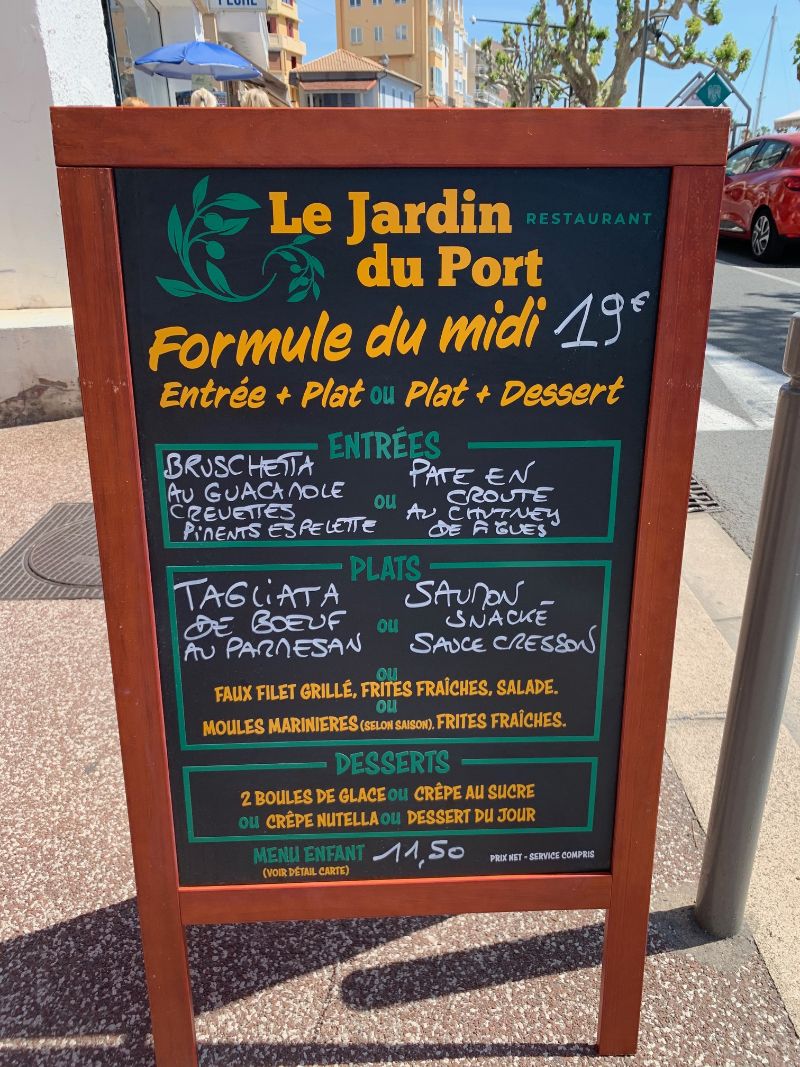 PÊCHE
Le Jardin RESTAURANT
du Port
Formule du midi 19€
Entrée + Plat ou Plat + Dessert
ENTRÉES
BRUSCHETTA
AU GUACAMOLE
CREVETTES
PIMENTS ESPELETTE
ou
PATE EN
CROUTE
AU CHUTNEY
DE FIGUES
PLATS
TAGLIATA
DE BOEUF
AU PARMESAN
ou
SAUMON
SNACKÉ
SAUCE CRESSON
ou
FAUX FILET GRILLÉ, FRITES FRAÎCHES, SALADE.
ou
MOULES MARINIERES (SELON SAISON), FRITES FRAÎCHES.
DESSERTS
2 BOULES DE GLACE ou CRÊPE AU SUCRE
ou CRÊPE NUTELLA ou DESSERT DU JOUR
MENU ENFANT 11,50
(VOIR DÉTAIL CARTE)
PRIX NET - SERVICE COMPRIS